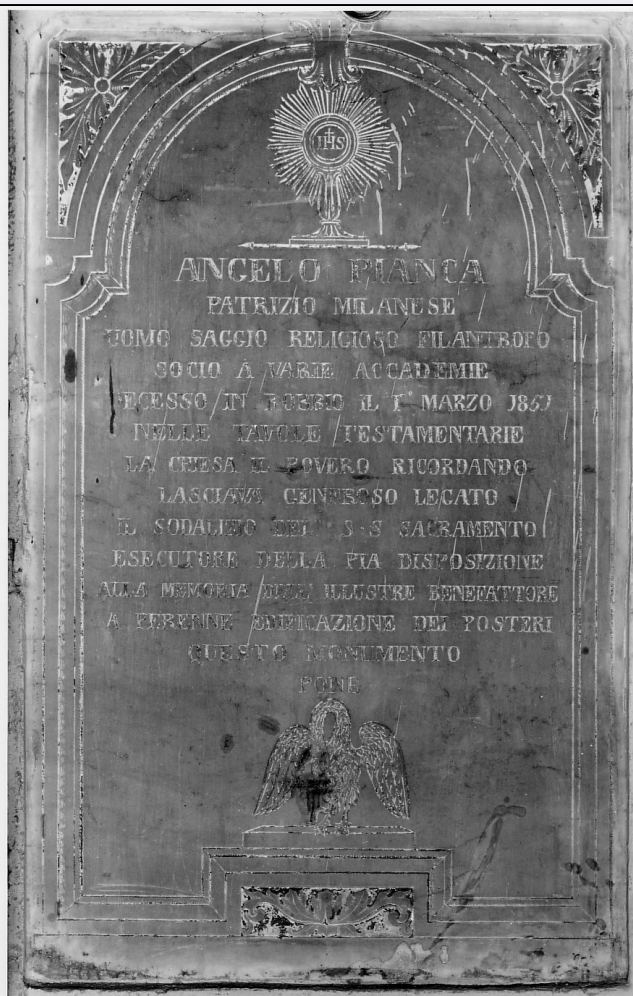 IHS
ANGELO PIANCA
PATRIZIO MILANESE
UOMO SAGGIO RELIGIOSO FILANTROPO
SOCIO A VARIE ACCADEMIE
DECESSO IN ROBBIO IL 1° MARZO 1851
NELLE TAVOLE TESTAMENTARIE
LA CHIESA IL POVERO RICORDANDO
LASCIAVA GENEROSO LEGATO
IL SODALIZIO DEL S·S SACRAMENTO
ESECUTORE DELLA PIA DISPOSIZIONE
ALLA MEMORIA DELL' ILLUSTRE BENEFATTORE
A PERENNE EDIFICAZIONE DEI POSTERI
QUESTO MONUMENTO
PONE